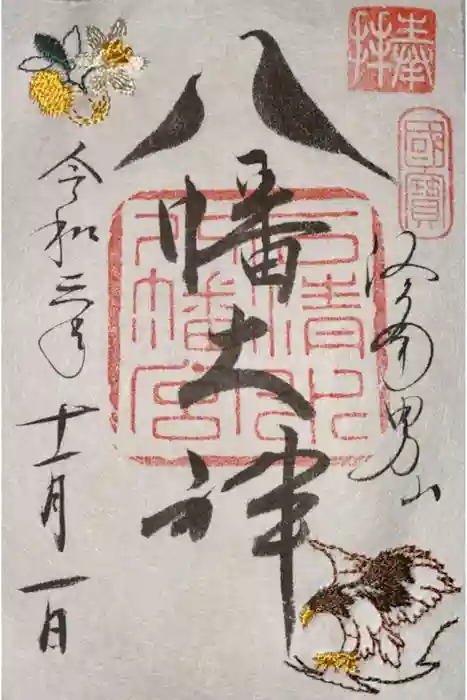 奉拝
國寶
洛南男山
八幡大神
石清水
八幡宮
令和三年
十一月一日